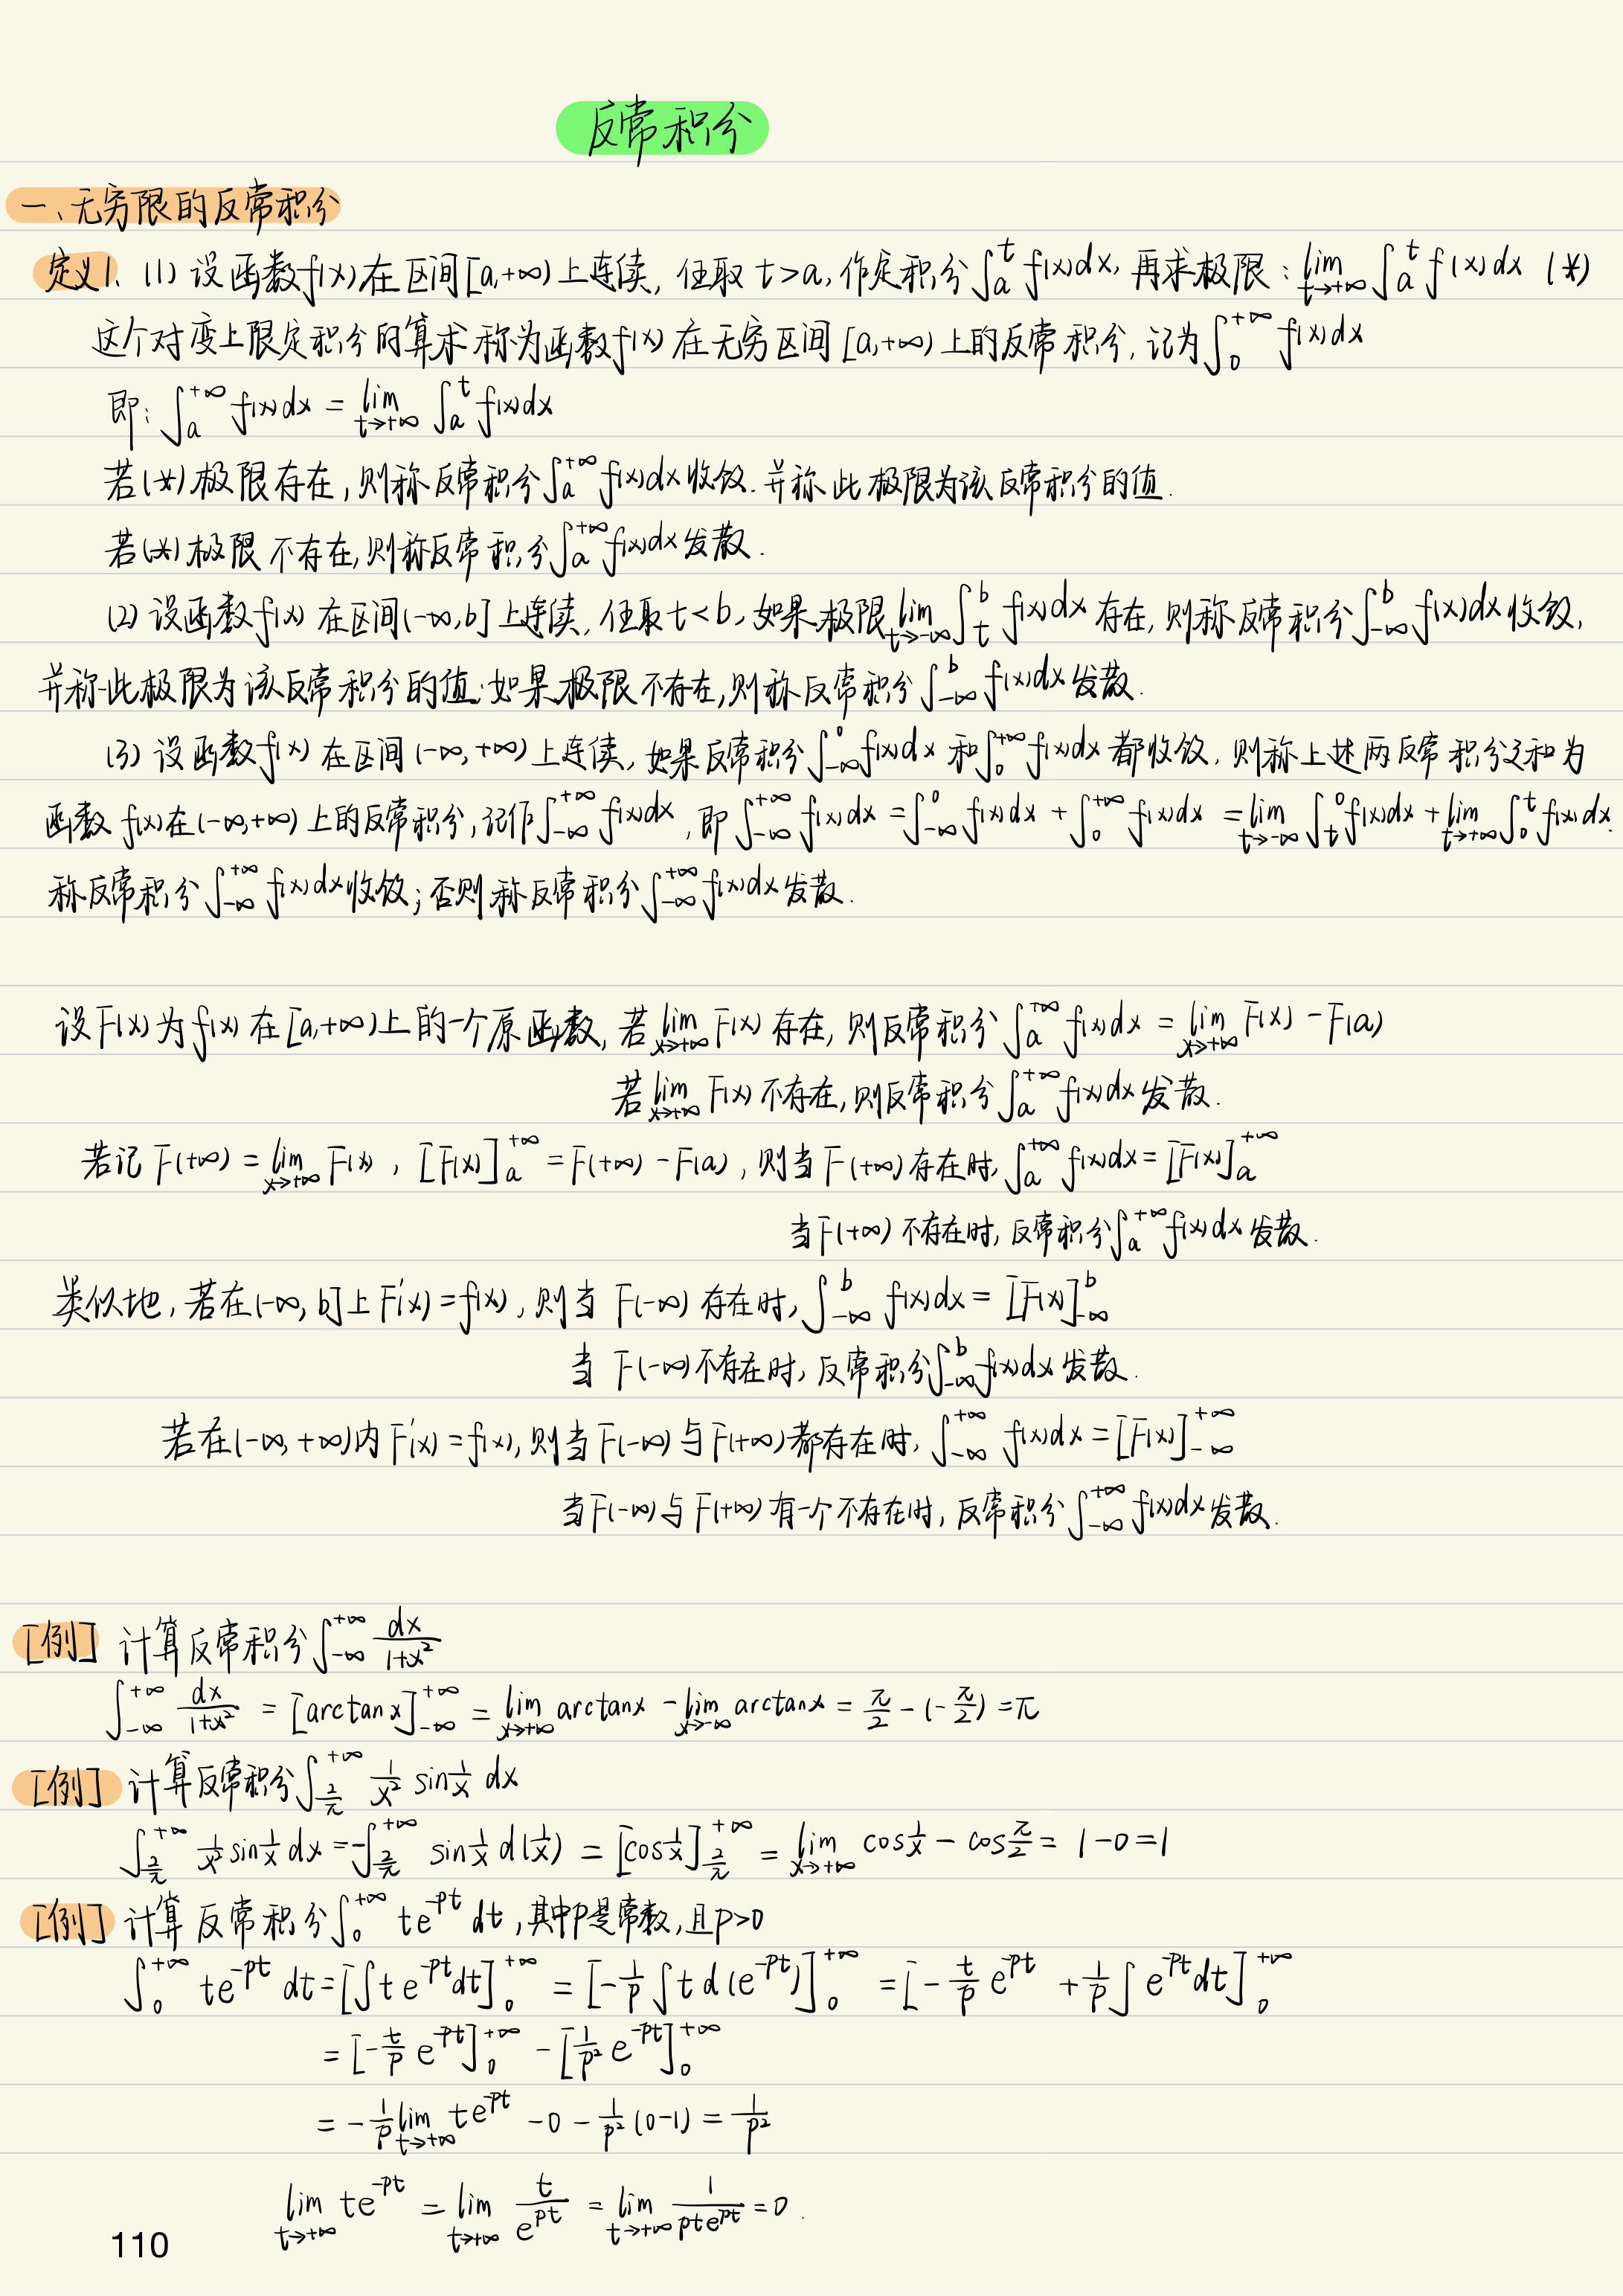 反常积分
一、无穷限的反常积分
定义1. (1) 设函数f(x)在区间[a,+∞)上连续, 任取 t>a, 作定积分∫_a^t f(x)dx, 再求极限: lim_{t→+∞} ∫_a^t f(x)dx (*)
这个对变上限定积分的算术称为函数f(x)在无穷区间[a,+∞)上的反常积分, 记为∫_0^{+∞} f(x)dx
即: ∫_a^{+∞} f(x)dx = lim_{t→+∞} ∫_a^t f(x)dx
若(*)极限存在, 则称反常积分∫_a^{+∞} f(x)dx收敛. 并称此极限为该反常积分的值.
若(*)极限不存在, 则称反常积分∫_a^{+∞} f(x)dx发散.
(2) 设函数f(x)在区间(-∞,b]上连续, 任取t<b, 如果极限lim_{t→-∞} ∫_t^b f(x)dx存在, 则称反常积分∫_{-∞}^b f(x)dx收敛,
并称此极限为该反常积分的值; 如果极限不存在, 则称反常积分∫_{-∞}^b f(x)dx发散.
(3) 设函数f(x)在区间(-∞,+∞)上连续, 如果反常积分∫_{-∞}^0 f(x)dx 和∫_0^{+∞} f(x)dx 都收敛, 则称上述两反常积分之和为
函数 f(x)在(-∞,+∞)上的反常积分, 记作∫_{-∞}^{+∞} f(x)dx, 即 ∫_{-∞}^{+∞} f(x)dx = ∫_{-∞}^0 f(x)dx + ∫_0^{+∞} f(x)dx = lim_{t→-∞} ∫_t^0 f(x)dx + lim_{t→+∞} ∫_0^t f(x)dx.
称反常积分∫_{-∞}^{+∞} f(x)dx收敛; 否则称反常积分∫_{-∞}^{+∞} f(x)dx发散.
设F(x)为f(x)在[a,+∞)上的一个原函数, 若lim_{x→+∞} F(x)存在, 则反常积分∫_a^{+∞} f(x)dx = lim_{x→+∞} F(x) - F(a)
若lim_{x→+∞} F(x)不存在, 则反常积分∫_a^{+∞} f(x)dx发散.
若记 F(+∞) = lim_{x→+∞} F(x), [F(x)]_a^{+∞} = F(+∞) - F(a), 则当F(+∞)存在时, ∫_a^{+∞} f(x)dx = [F(x)]_a^{+∞}
当F(+∞)不存在时, 反常积分∫_a^{+∞} f(x)dx发散.
类似地, 若在(-∞, b]上F'(x)=f(x), 则当 F(-∞) 存在时, ∫_{-∞}^b f(x)dx = [F(x)]_{-∞}^b
当 F(-∞)不存在时, 反常积分∫_{-∞}^b f(x)dx发散.
若在(-∞, +∞)内F'(x)=f(x), 则当F(-∞)与F(+∞)都存在时, ∫_{-∞}^{+∞} f(x)dx = [F(x)]_{-∞}^{+∞}
当F(-∞)与F(+∞)有一个不存在时, 反常积分∫_{-∞}^{+∞} f(x)dx发散.
[例] 计算反常积分∫_{-∞}^{+∞} dx/(1+x²)
∫_{-∞}^{+∞} dx/(1+x²) = [arctan x]_{-∞}^{+∞} = lim_{x→+∞} arctanx - lim_{x→-∞} arctanx = π/2 - (-π/2) = π
[例] 计算反常积分∫_{2/π}^{+∞} 1/x² sin 1/x dx
∫_{2/π}^{+∞} 1/x² sin 1/x dx = -∫_{2/π}^{+∞} sin 1/x d(1/x) = [cos 1/x]_{2/π}^{+∞} = lim_{x→+∞} cos 1/x - cos π/2 = 1-0=1
[例] 计算反常积分∫_0^{+∞} te^{-pt} dt, 其中p是常数, 且p>0
∫_0^{+∞} te^{-pt} dt = [∫te^{-pt}dt]_0^{+∞} = [-1/p ∫t d(e^{-pt})]_0^{+∞} = [-t/p e^{-pt} + 1/p ∫e^{-pt}dt]_0^{+∞}
= [-t/p e^{-pt}]_0^{+∞} - [1/p² e^{-pt}]_0^{+∞}
= -1/p lim_{t→+∞} te^{-pt} - 0 - 1/p² (0-1) = 1/p²
lim_{t→+∞} te^{-pt} = lim_{t→+∞} t/e^{pt} = lim_{t→+∞} 1/pte^{pt} = 0.
110